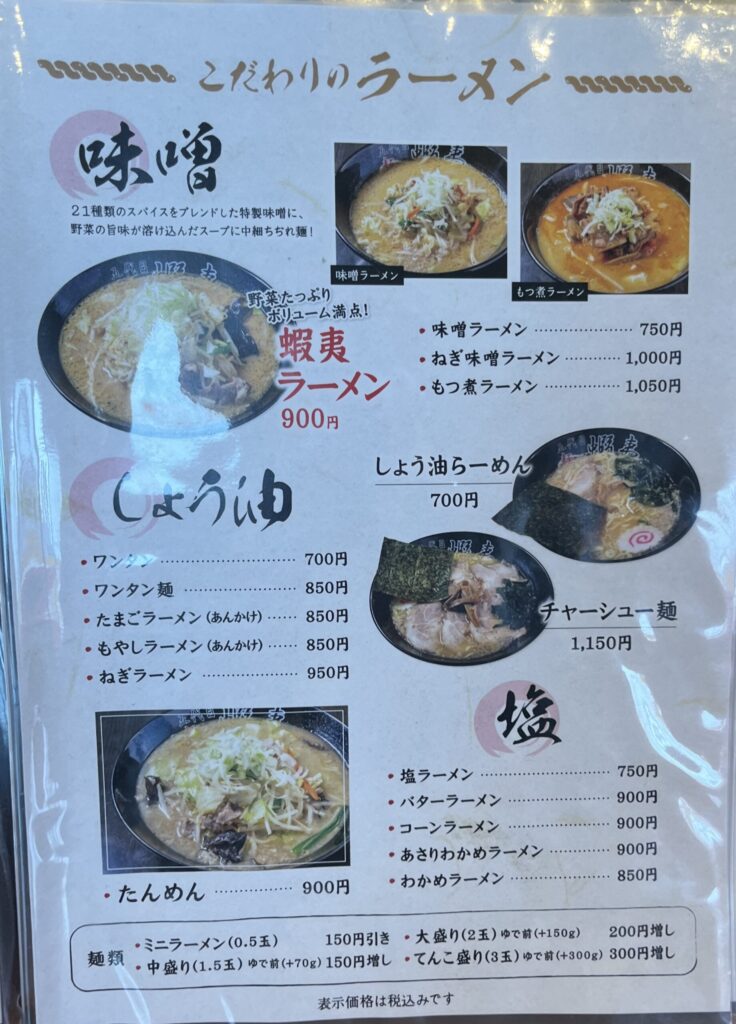 こだわりのラーメン
味噌
21種類のスパイスをブレンドした特製味噌に、
野菜の旨味が溶け込んだスープに中細ちぢれ麺!
味噌ラーメン
もつ煮ラーメン
野菜たっぷり
ボリューム満点!
蝦夷
ラーメン
900円
・味噌ラーメン 750円
・ねぎ味噌ラーメン 1,000円
・もつ煮ラーメン 1,050円
しょう油
しょう油らーめん
700円
・ワンタン 700円
・ワンタン麺 850円
・たまごラーメン(あんかけ) 850円
・もやしラーメン(あんかけ) 850円
・ねぎラーメン 950円
チャーシュー麺
1,150円
・たんめん 900円
塩
・塩ラーメン 750円
・バターラーメン 900円
・コーンラーメン 900円
・あさりわかめラーメン 900円
・わかめラーメン 850円
麺類
・ミニラーメン(0.5玉) 150円引き
・中盛り(1.5玉)ゆで前(+70g) 150円増し
・大盛り(2玉)ゆで前(+150g) 200円増し
・てんこ盛り(3玉)ゆで前(+300g) 300円増し
表示価格は税込みです